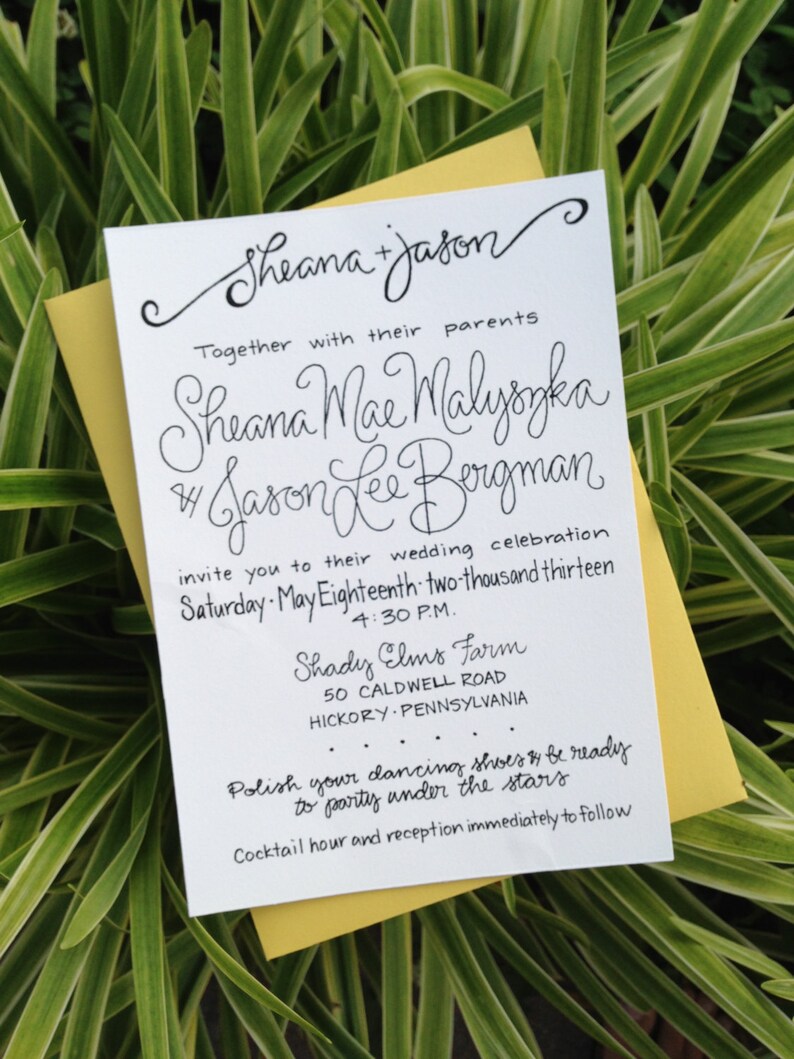 sheana + jason
Together with their parents
Sheana Mae Malysyka
& Jason Lee Bergman
invite you to their wedding celebration
Saturday · May Eighteenth · two-thousand thirteen
4:30 P.M.
Shady Elms Farm
50 CALDWELL ROAD
HICKORY · PENNSYLVANIA
· · · · · ·
Polish your dancing shoes & be ready
to party under the stars
Cocktail hour and reception immediately to follow